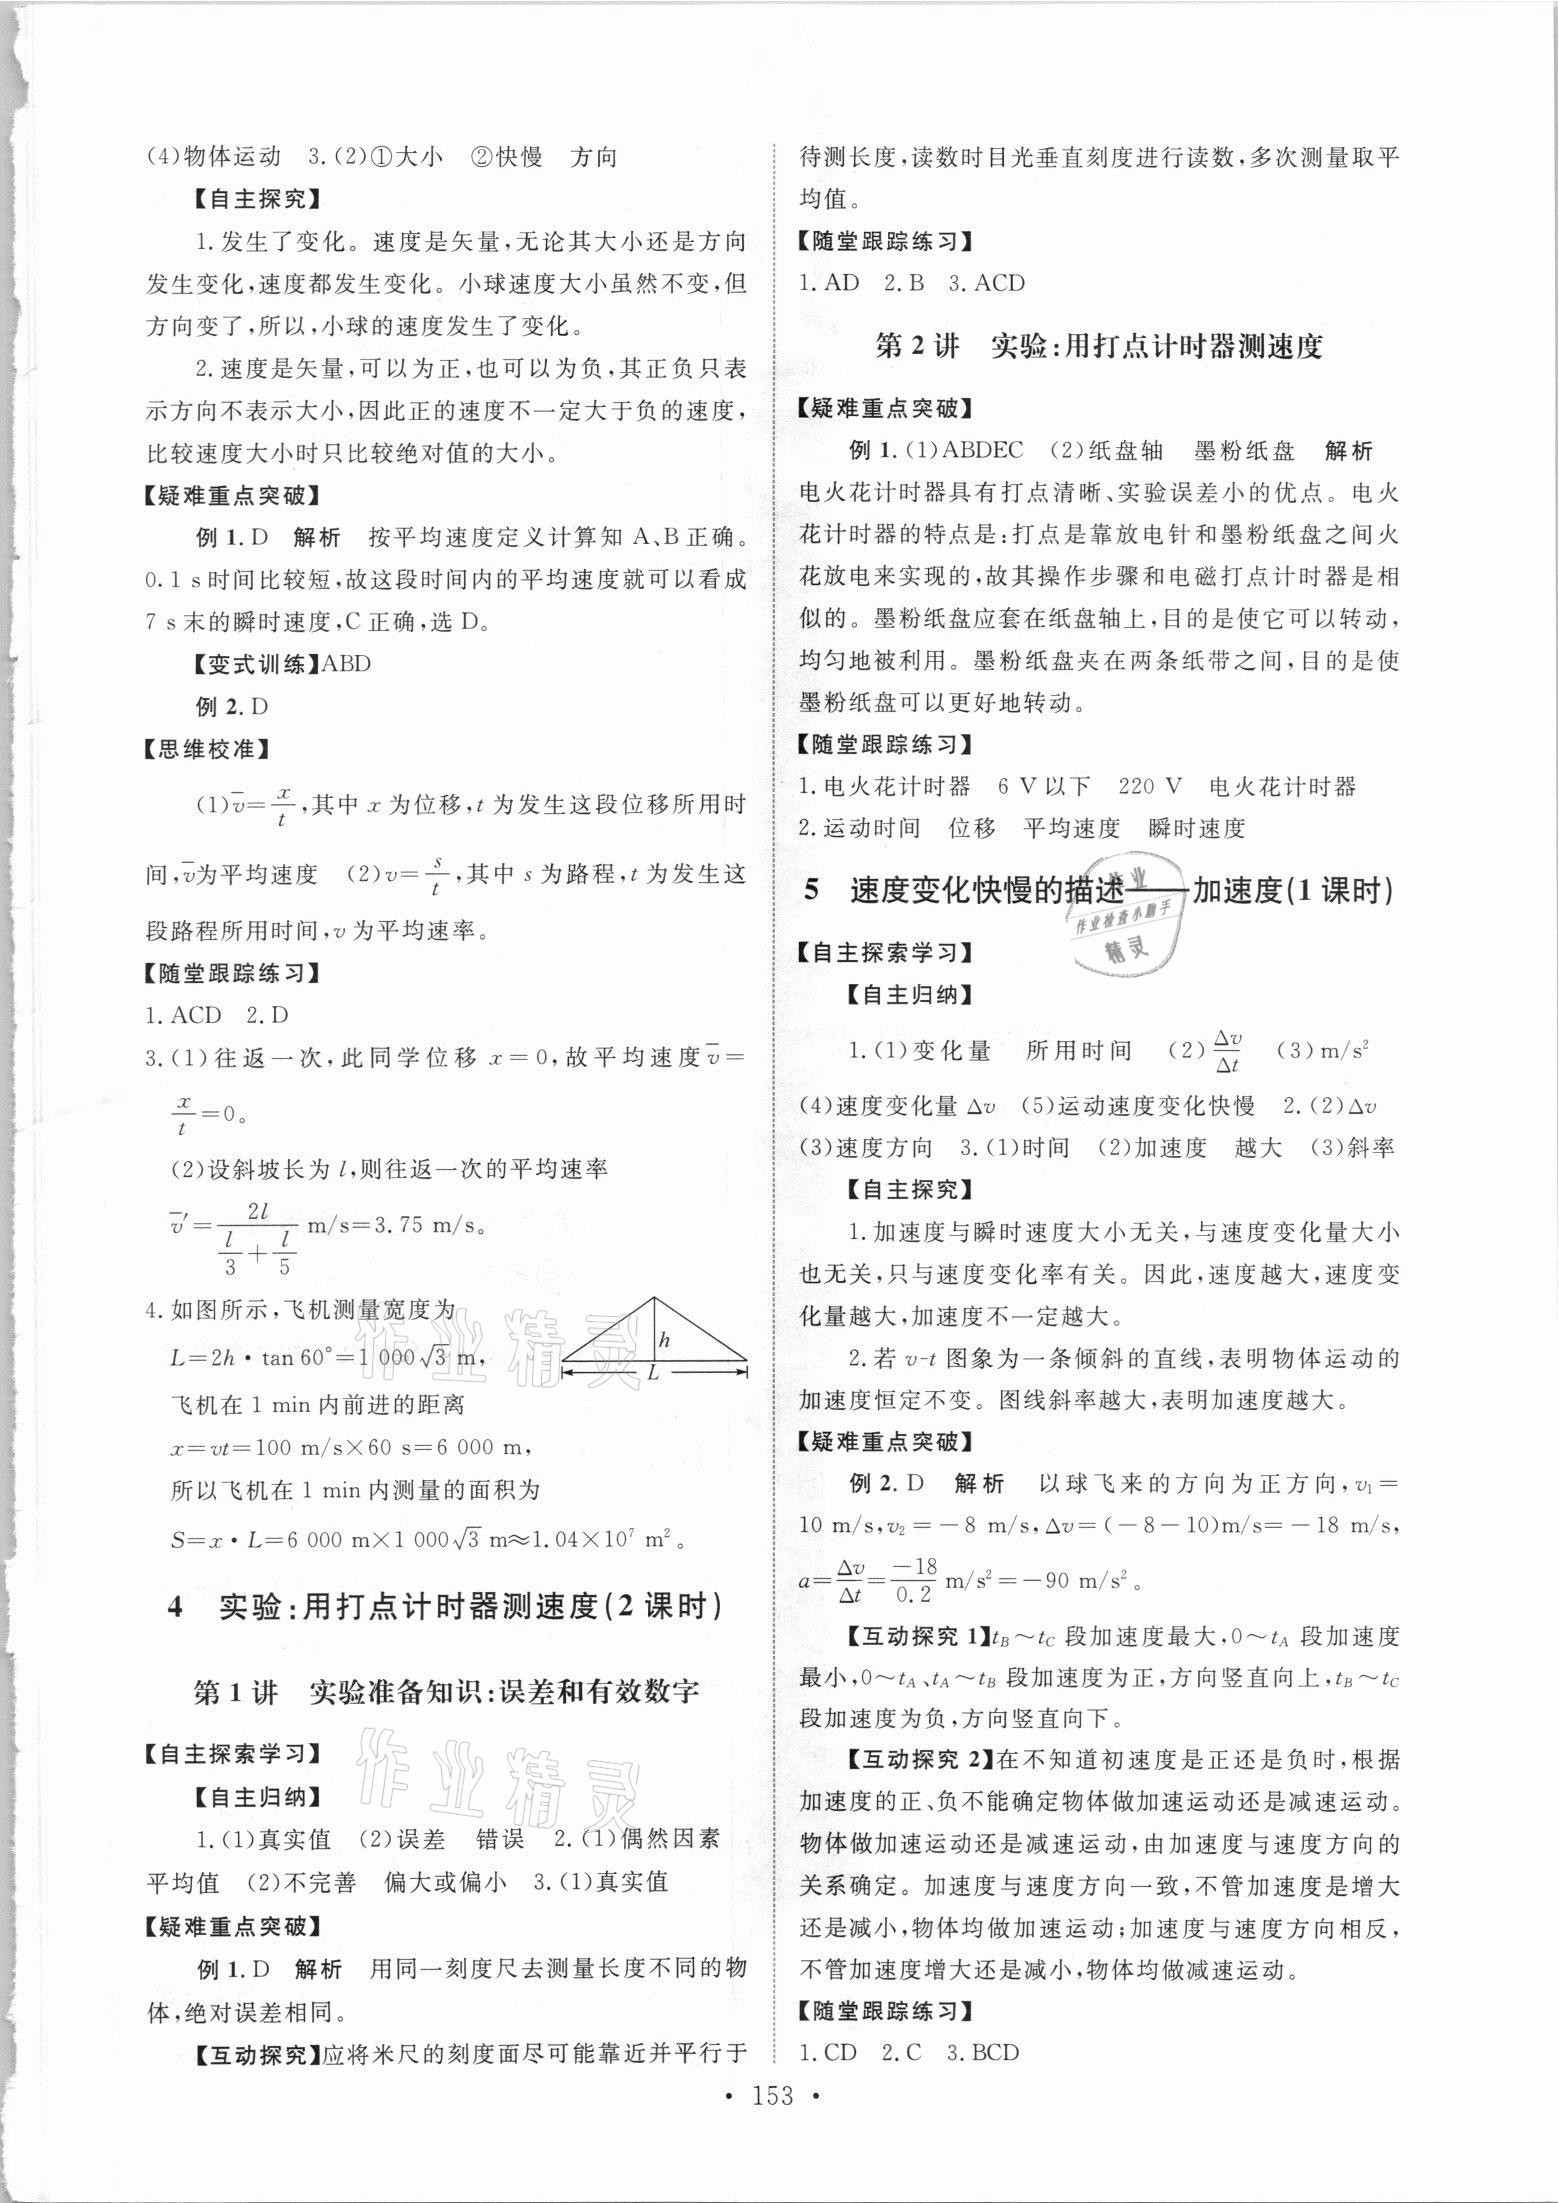 (4)物体运动　3.(2)①大小　②快慢　方向
【自主探究】
1.发生了变化。速度是矢量,无论其大小还是方向
发生变化,速度都发生变化。小球速度大小虽然不变,但
方向变了,所以,小球的速度发生了变化。
2.速度是矢量,可以为正,也可以为负,其正负只表
示方向不表示大小,因此正的速度不一定大于负的速度,
比较速度大小时只比较绝对值的大小。
【疑难重点突破】
例 1. D　解析　按平均速度定义计算知 A、B 正确。
0.1 s 时间比较短,故这段时间内的平均速度就可以看成
7 s 末的瞬时速度,C 正确,选 D。
【变式训练】ABD
例 2. D
【思维校准】
(1) v̄=x/t,其中 x 为位移,t 为发生这段位移所用时
间,v̄为平均速度　(2)v=s/t,其中 s 为路程,t 为发生这
段路程所用时间,v 为平均速率。
【随堂跟踪练习】
1. ACD　2. D
3.(1)往返一次,此同学位移 x=0,故平均速度 v̄=
x/t=0。
(2)设斜坡长为 l,则往返一次的平均速率
v̄′=2l/(l/3+l/5) m/s=3.75 m/s。
4.如图所示,飞机测量宽度为
L=2h·tan 60°=1 000√3 m,
飞机在 1 min 内前进的距离
x=vt=100 m/s×60 s=6 000 m,
所以飞机在 1 min 内测量的面积为
S=x·L=6 000 m×1 000√3 m≈1.04×10⁷ m²。
h
L
4　实验:用打点计时器测速度(2 课时)
第 1 讲　实验准备知识:误差和有效数字
【自主探索学习】
【自主归纳】
1.(1)真实值　(2)误差　错误　2.(1)偶然因素
平均值　(2)不完善　偏大或偏小　3.(1)真实值
【疑难重点突破】
例 1. D　解析　用同一刻度尺去测量长度不同的物
体,绝对误差相同。
【互动探究】应将米尺的刻度面尽可能靠近并平行于
待测长度,读数时目光垂直刻度进行读数,多次测量取平
均值。
【随堂跟踪练习】
1. AD　2. B　3. ACD
第 2 讲　实验:用打点计时器测速度
【疑难重点突破】
例 1.(1)ABDEC　(2)纸盘轴　墨粉纸盘　解析
电火花计时器具有打点清晰、实验误差小的优点。电火
花计时器的特点是:打点是靠放电针和墨粉纸盘之间火
花放电来实现的,故其操作步骤和电磁打点计时器是相
似的。墨粉纸盘应套在纸盘轴上,目的是使它可以转动,
均匀地被利用。墨粉纸盘夹在两条纸带之间,目的是使
墨粉纸盘可以更好地转动。
【随堂跟踪练习】
1.电火花计时器　6 V 以下　220 V　电火花计时器
2.运动时间　位移　平均速度　瞬时速度
5　速度变化快慢的描述——加速度(1 课时)
【自主探索学习】
【自主归纳】
1.(1)变化量　所用时间　(2)Δv/Δt　(3)m/s²
(4)速度变化量 Δv　(5)运动速度变化快慢　2.(2)Δv
(3)速度方向　3.(1)时间　(2)加速度　越大　(3)斜率
【自主探究】
1.加速度与瞬时速度大小无关,与速度变化量大小
也无关,只与速度变化率有关。因此,速度越大,速度变
化量越大,加速度不一定越大。
2.若 v-t 图象为一条倾斜的直线,表明物体运动的
加速度恒定不变。图线斜率越大,表明加速度越大。
【疑难重点突破】
例 2. D　解析　以球飞来的方向为正方向,v₁=
10 m/s,v₂=-8 m/s,Δv=(-8-10)m/s=-18 m/s,
a=Δv/Δt=-18/0.2 m/s²=-90 m/s²。
【互动探究 1】t_B~t_C 段加速度最大,0~t_A 段加速度
最小,0~t_A、t_A~t_B 段加速度为正,方向竖直向上,t_B~t_C
段加速度为负,方向竖直向下。
【互动探究 2】在不知道初速度是正还是负时,根据
加速度的正、负不能确定物体做加速运动还是减速运动。
物体做加速运动还是减速运动,由加速度与速度方向的
关系确定。加速度与速度方向一致,不管加速度是增大
还是减小,物体均做加速运动;加速度与速度方向相反,
不管加速度增大还是减小,物体均做减速运动。
【随堂跟踪练习】
1. CD　2. C　3. BCD
· 153 ·
作业精灵
作业精灵
作业
作业检查小助手
精灵